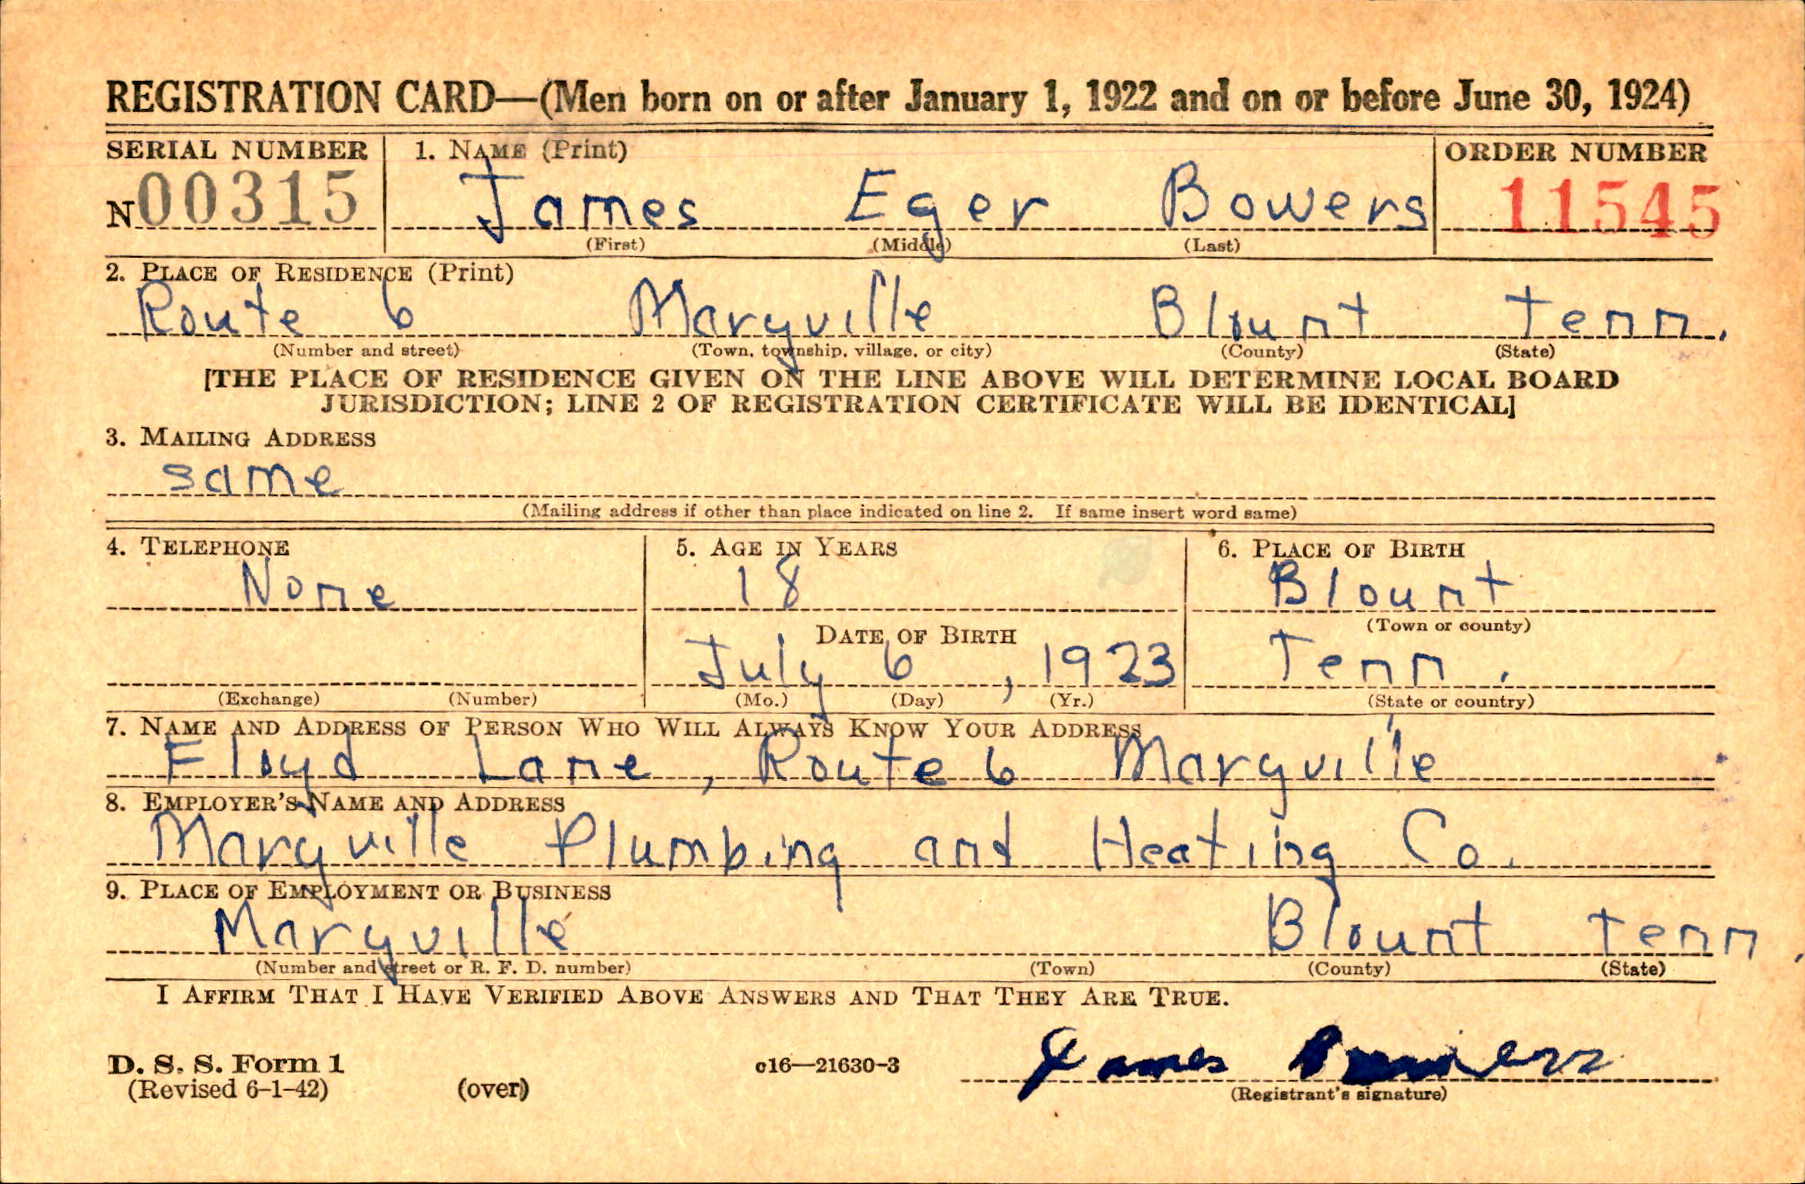 REGISTRATION CARD—(Men born on or after January 1, 1922 and on or before June 30, 1924)
SERIAL NUMBER 1. NAME (Print) ORDER NUMBER
N 00315 James Eger Bowers 11545
(First) (Middle) (Last)
2. PLACE OF RESIDENCE (Print)
Route 6 Maryville Blount Tenn.
(Number and street) (Town, township, village, or city) (County) (State)
[THE PLACE OF RESIDENCE GIVEN ON THE LINE ABOVE WILL DETERMINE LOCAL BOARD
JURISDICTION; LINE 2 OF REGISTRATION CERTIFICATE WILL BE IDENTICAL]
3. MAILING ADDRESS
same
(Mailing address if other than place indicated on line 2. If same insert word same)
4. TELEPHONE 5. AGE IN YEARS 6. PLACE OF BIRTH
None 18 Blount
DATE OF BIRTH (Town or county)
July 6, 1923 Tenn.
(Exchange) (Number) (Mo.) (Day) (Yr.) (State or country)
7. NAME AND ADDRESS OF PERSON WHO WILL ALWAYS KNOW YOUR ADDRESS
Floyd Lane, Route 6 Maryville
8. EMPLOYER'S NAME AND ADDRESS
Maryville Plumbing and Heating Co.
9. PLACE OF EMPLOYMENT OR BUSINESS
Maryville Blount Tenn.
(Number and street or R. F. D. number) (Town) (County) (State)
I AFFIRM THAT I HAVE VERIFIED ABOVE ANSWERS AND THAT THEY ARE TRUE.
James Bowers
D. S. S. Form 1 c16—21630-3
(Revised 6-1-42) (over) (Registrant's signature)